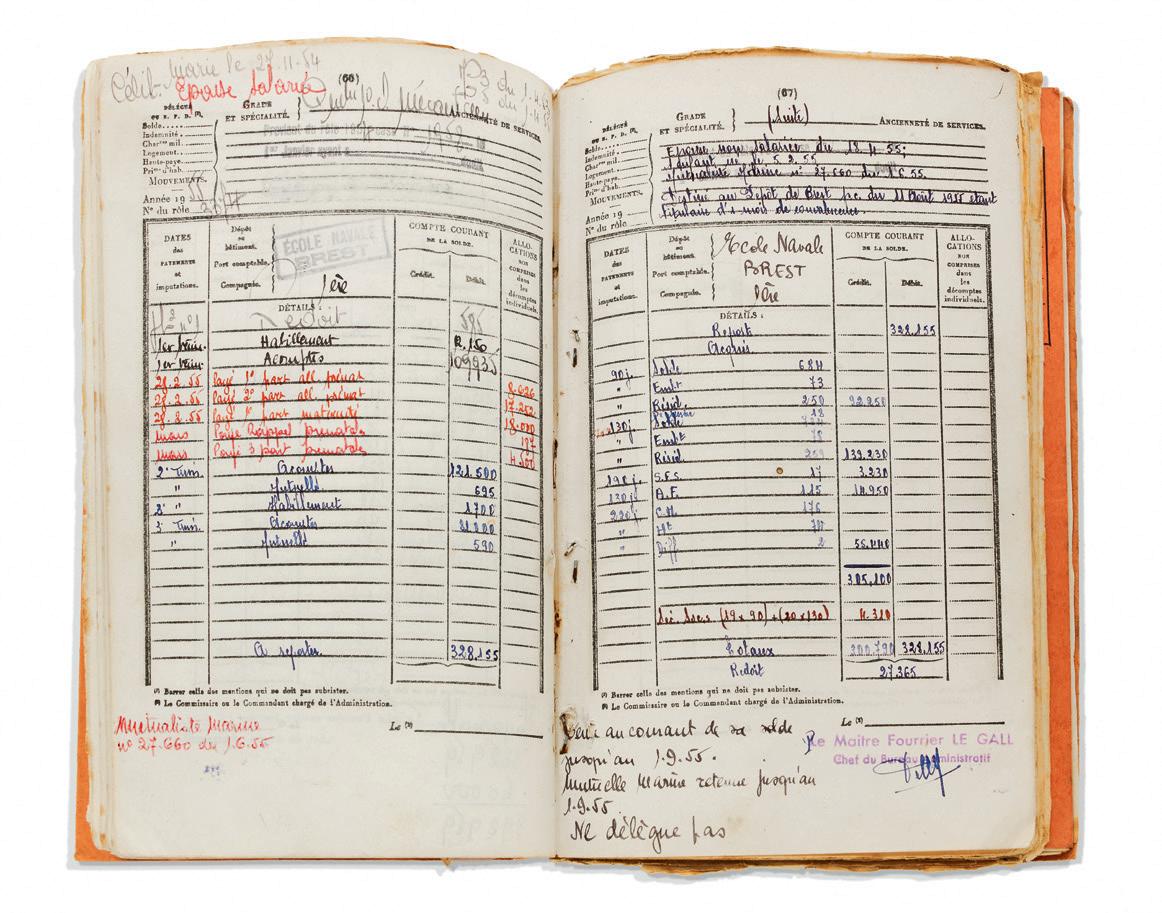 marié le 27.11.54
Célib. Epouse salarié
(66)
P3 du 1.4
DÉLÉGUÉ
OU S. F. D. (1).
Solde
Indemnité
Charges mil.
Logement
Haute-paye
Prime d'hab.
MOUVEMENTS.
Année 19
N° du rôle
GRADE
ET SPÉCIALITÉ.
ANCIENNETÉ DE SERVICES.
DATES
des
PAYEMENTS
et
imputations.
Dépôt
ou
bâtiment.
Port comptable.
Compagnie.
ÉCOLE NAVALE
BREST
1ère
COMPTE COURANT
DE LA SOLDE.
Crédit.
Débit.
ALLO-
CATIONS
NON
COMPRISES
dans
les
décomptes
individuels.
DÉTAILS :
Redoit 595
1er Trim. Habillement
1er Trim. Acomptes 109935
28.2.55 payé 1° part all. prénat 8.626
28.2.55 payé 2° part all. prénat 17.252
28.2.55 payé 1° part maternité 18.000
mars Payé Rappel prenatale 197
mars Payé 3 part prenatale
2° Trim. Acomptes 121.500
" Mutuelle 695
2° " Habillement 1700
3° Trim. Acomptes
" Mutuelle 590
A reporter. 328.155
(1) Barrer celle des mentions qui ne doit pas subsister.
(2) Le Commissaire ou le Commandant chargé de l'Administration.
Mutualiste Marine
n° 27.660 du 1.6.55
Le (2)
(67)
DÉLÉGUÉ
OU S. F. D. (1).
Solde
Indemnité
Charges mil.
Logement
Haute-paye
Prime d'hab.
MOUVEMENTS.
Année 19
N° du rôle
GRADE
ET SPÉCIALITÉ.
(Suite)
ANCIENNETÉ DE SERVICES.
Epouse non salariée du 18.4.55;
1 enfant né le 5.2.55
Mutualiste Marine n° 27.660 du 1.6.55.
au Dépôt de Brest p.c. du 11 Août 1955 étant
titulaire d'1 mois de convalescence.
DATES
des
PAYEMENTS
et
imputations.
Dépôt
ou
bâtiment.
Port comptable.
Compagnie.
Ecole Navale
BREST
1ère
COMPTE COURANT
DE LA SOLDE.
Crédit.
Débit.
ALLO-
CATIONS
NON
COMPRISES
dans
les
décomptes
individuels.
DÉTAILS :
Report 328.155
Acquis.
90 j. Solde 684
" Embt 73
" Résid. 250 92.250
130 j. Solde
" Embt 78
" Résid. 259 139.230
190 j. S.F.S. 17 3.230
130 j. A.F. 115 14.950
220 j. C.M. 176
" Ht
" Diff 2 55.440
305.100
Séc. Socs. (19 x 90) + (20 x 130) 4.310
Totaux 300.790 328.155
Redoit 27.365
(1) Barrer celle des mentions qui ne doit pas subsister.
(2) Le Commissaire ou le Commandant chargé de l'Administration.
Tenu au courant de sa solde
jusqu'au 1.9.55.
Mutuelle Marine retenue jusqu'au
1.9.55.
Ne délègue pas
Le (2)
Le Maitre Fourrier LE GALL
Chef du Bureau Administratif